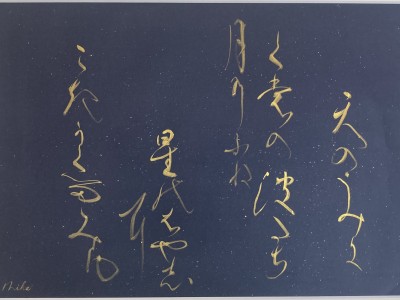 天のうみに
くもの波たち
月のふね
星のはやしに
こきかくるみゆ